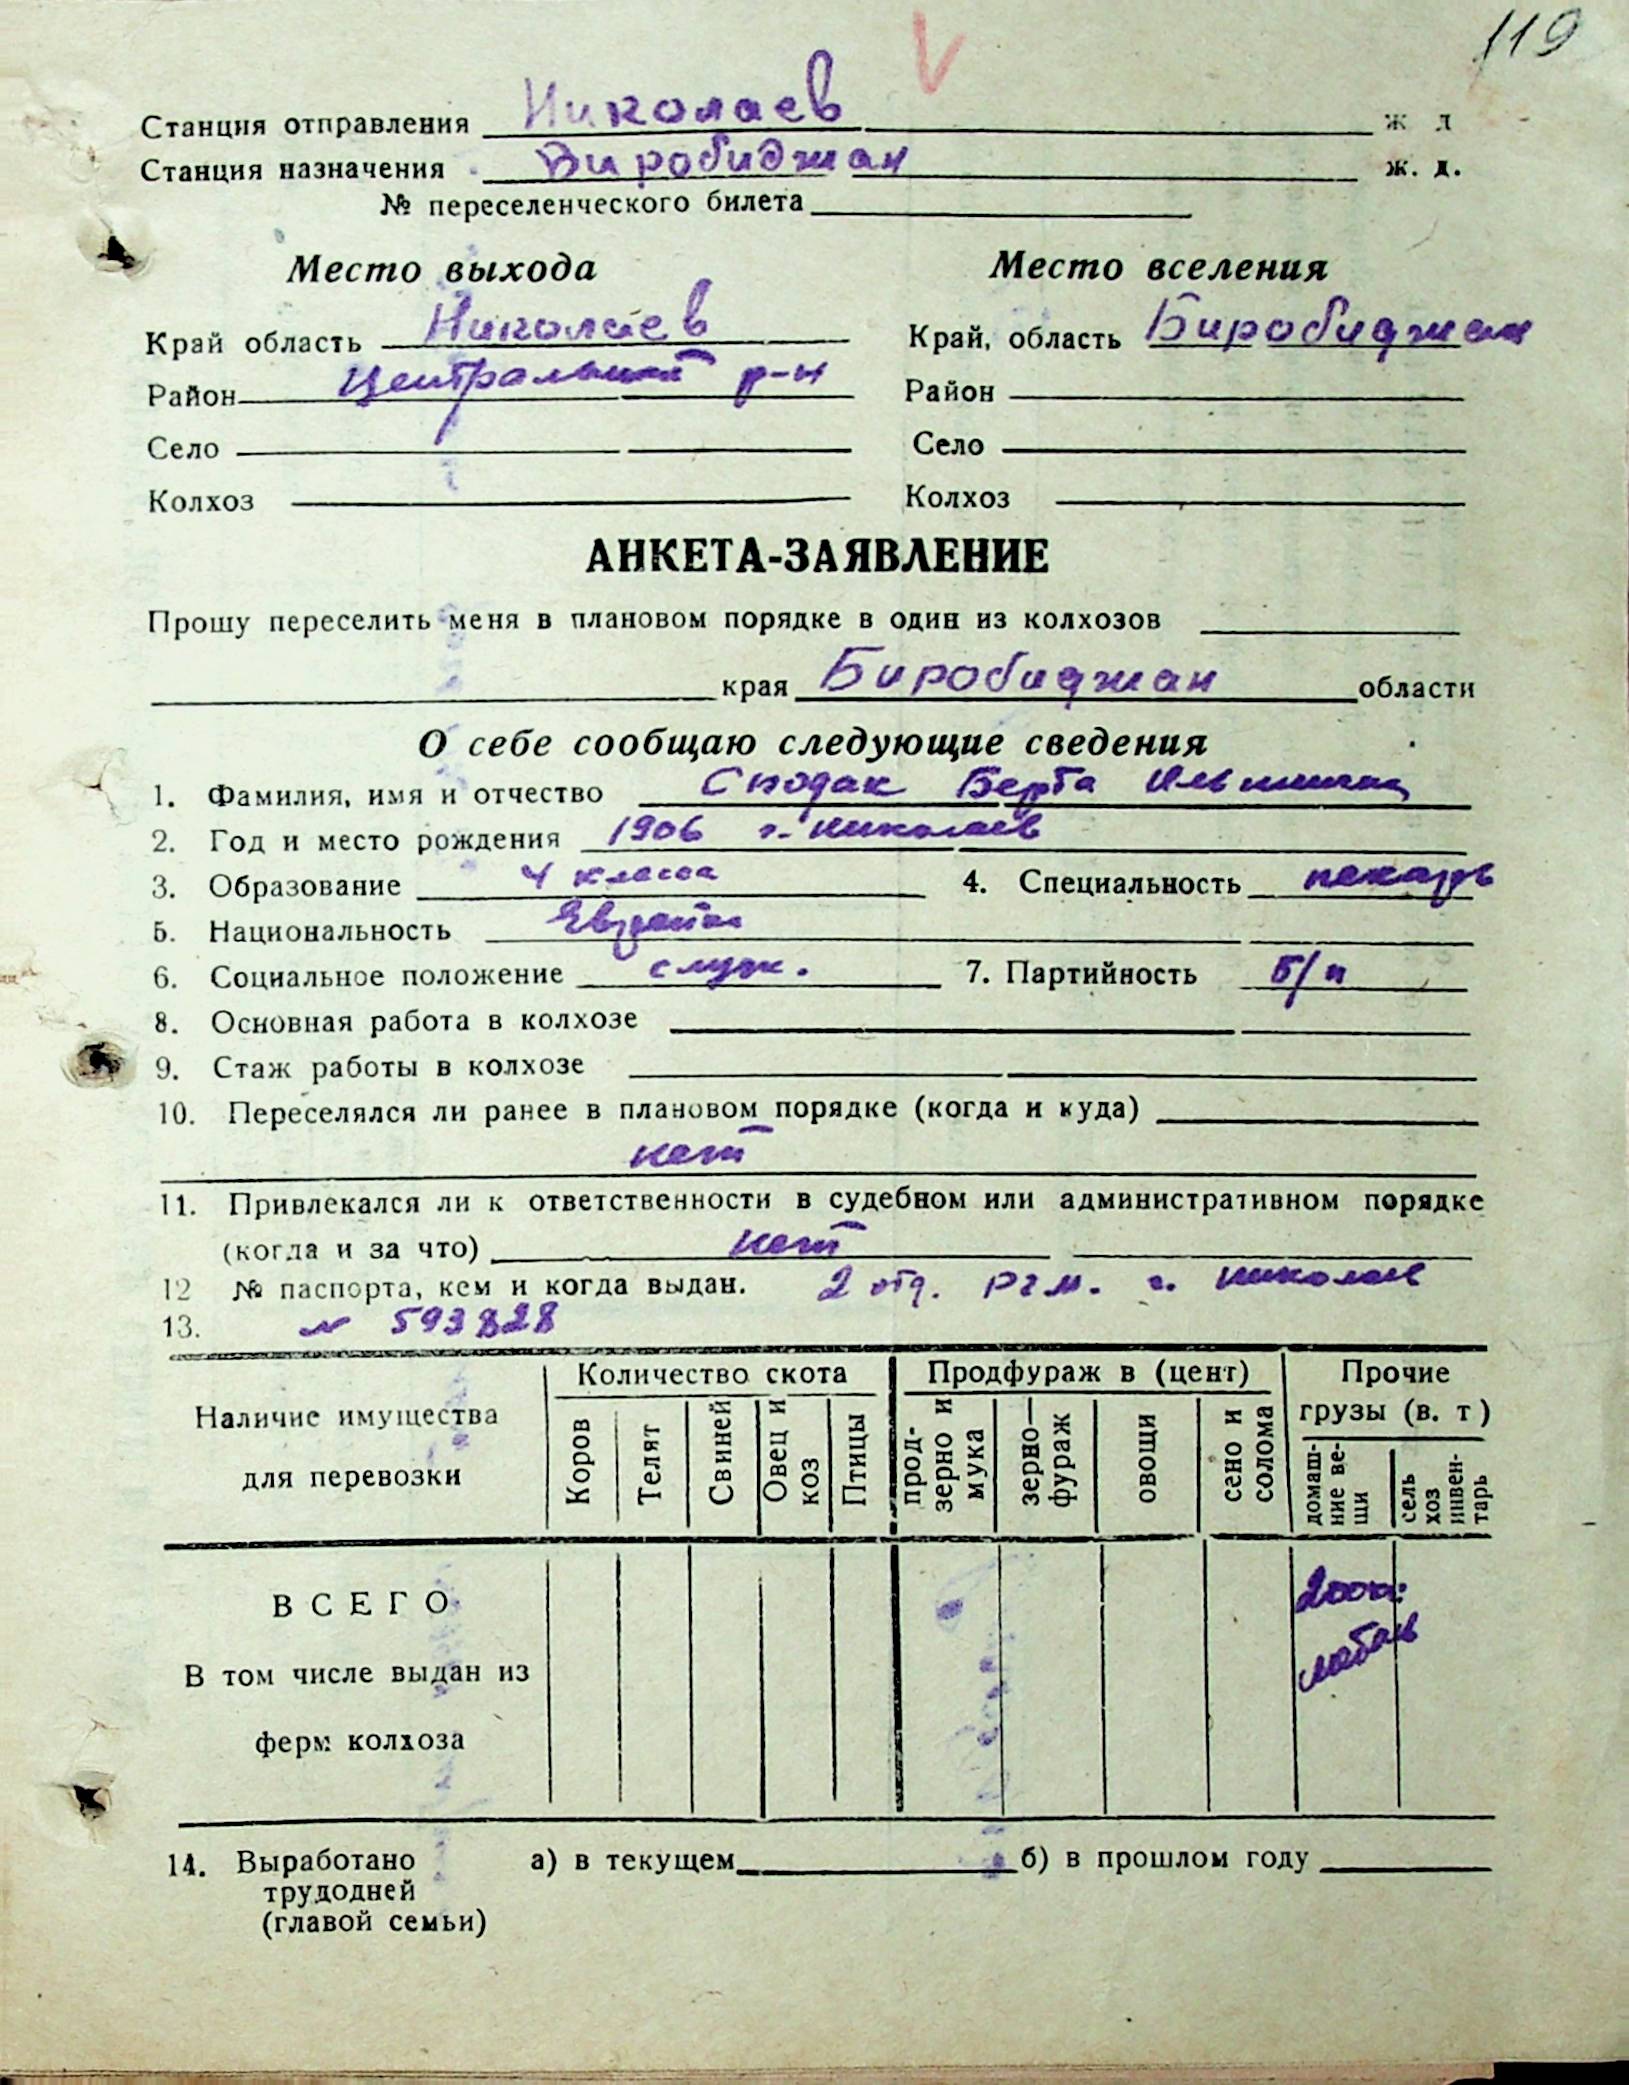 119
Станция отправления Николаев ж д
Станция назначения Биробиджан ж. д.
№ переселенческого билета
Место выхода Место вселения
Край область Николаев Край, область Биробиджан
Район Центральный р-н Район
Село Село
Колхоз Колхоз
АНКЕТА-ЗАЯВЛЕНИЕ
Прошу переселить меня в плановом порядке в один из колхозов
края Биробиджан области
О себе сообщаю следующие сведения
1. Фамилия, имя и отчество Сподак Берта Ильинична
2. Год и место рождения 1906 г. Николаев
3. Образование 4 класса 4. Специальность пекарь
5. Национальность Еврейка
6. Социальное положение служ. 7. Партийность Б/п
8. Основная работа в колхозе
9. Стаж работы в колхозе
10. Переселялся ли ранее в плановом порядке (когда и куда)
нет
11. Привлекался ли к ответственности в судебном или административном порядке
(когда и за что) нет
12 № паспорта, кем и когда выдан. 2 отд. РГМ. г. Николаев
13. № 593828
Наличие имущества для перевозки
Количество скота Продфураж в (цент) Прочие грузы (в. т)
Коров Телят Свиней Овец и коз Птицы прод-зерно и мука зерно—фураж овощи сено и солома домаш-ние ве-щи сель хоз инвен-тарь
ВСЕГО 2000
В том числе выдан из
ферм колхоза
14. Выработано а) в текущем б) в прошлом году
трудодней
(главой семьи)